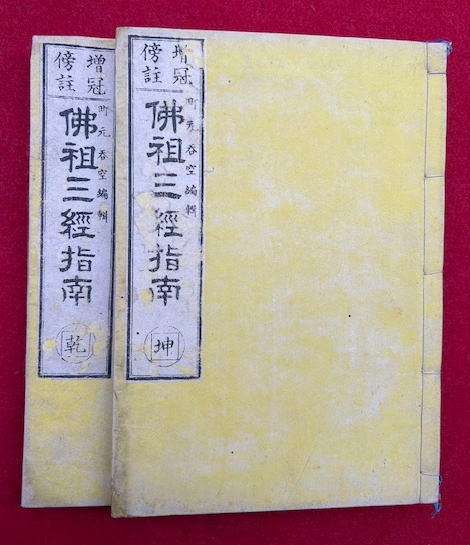 增冠
傍註
町元吞空編輯
佛祖三經指南
乾
增冠
傍註
町元吞空編輯
佛祖三經指南
坤